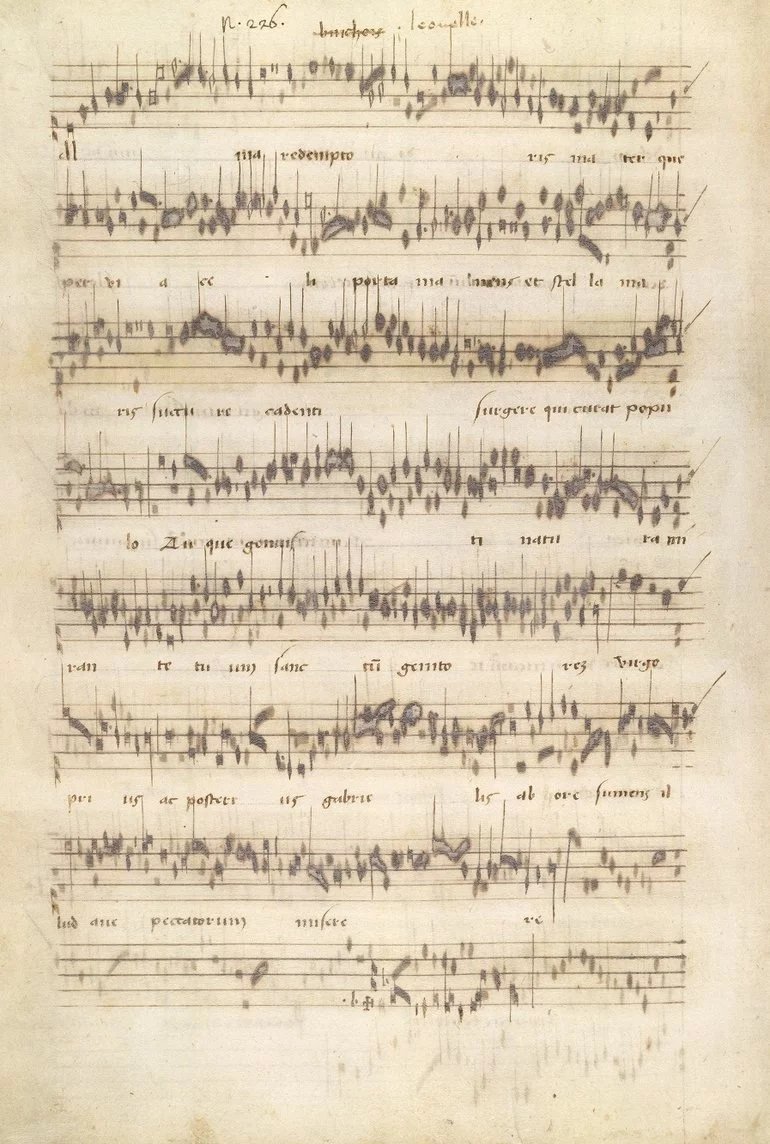 N. 226.
binchois . leonelle.
Al ma redempto ris ma ter que
per vi a ce li porta ma nens et stel la ma
ris succu re cadenti surgere qui curat popu
lo Tu que genuis ti natu ra mi
ran te tu um sanc tū genito rez virgo
pri us ac posteri us gabrie lis ab ore sumens il
lud ave peccatorum misere re